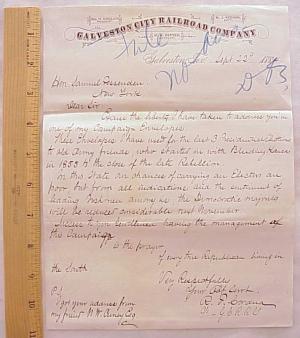 GALVESTON CITY RAILROAD COMPANY
Galveston, Tex. Sept. 22d
Hon. Samuel Fessenden
New York
Dear Sir
Have the liberty I have taken to address you in
one of my Campaign Envelopes
These Envelopes I have used for the last 3 Presidential Elections
to Old Army friends who started in with Bleeding Kansas
in 1855 to the close of the late Rebellion
In this State our chances of carrying an Elector are
poor but from all indications and the sentiment of
leading Irishmen among us the Democratic majority
will be reduced considerable next November
Success to you Gentlemen having the management of
the Campaign
is the prayer
of every true Republican living in
the South
Very Respectfully
Your Obt Servt
P.S.
I got your address from
my friend